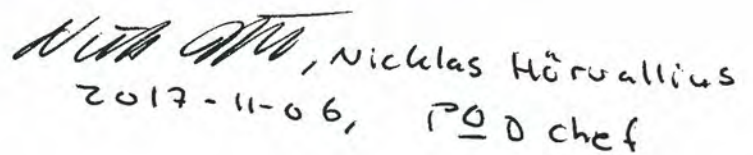 , Nicklas Hörvallius
2017-11-06, POD chef